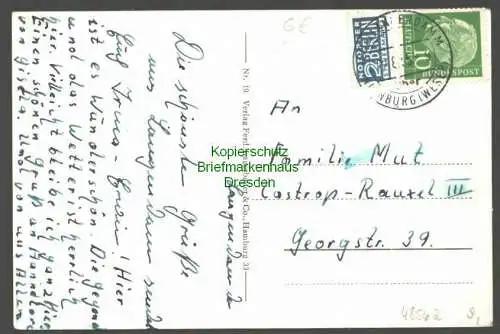 Die schönste Grüße
aus Langendamm
Eure Irma - Erwin! Hier
ist es Wunderschön. Die Gegend
und das Wetter ist herrlich
hier. Vielleicht bleibe ich ganz hier
Einen schönen Gruß an Hannelore
von Gisela. Und von uns Allen
6€
Nr. 10 Verlag Ferd. & Co., Hamburg 33
NOTOPFER
2 BERLIN
STEUERMARKE
10
DEUTSCHE
BUNDESPOST
NBURG (WES
An
Familie Mut
Castrop-Rauxel III
Georgstr. 39.
Kopierschutz
Briefmarkenhaus
Dresden